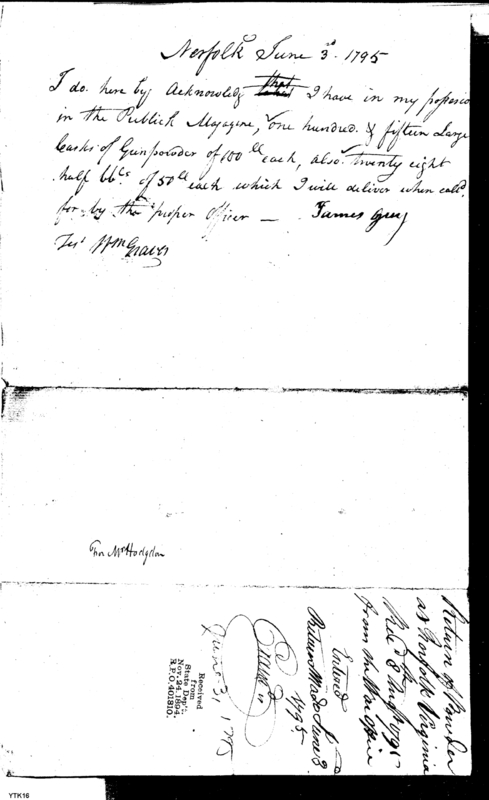 Norfolk June 3d. 1795
I do here by Acknowledg that I have in my possession
in the Publick Magazine, one hundred & fifteen Large
Casks of Gunpowder of 100 lb each, also twenty eight
half bbls of 50 lb each which I will deliver when calld.
for by the proper Officer — James Grey
Test Wm Graves
For Mr Hodgdon
Return of Powder
at Norfolk Virginia
Recd 8 Augt 1795
from the War Office
Entered
Return Made June 3
1795
June 3, 1795
Received
from
State Dep't.
Nov. 24, 1894.
R.P.O. 401810.
YTK16